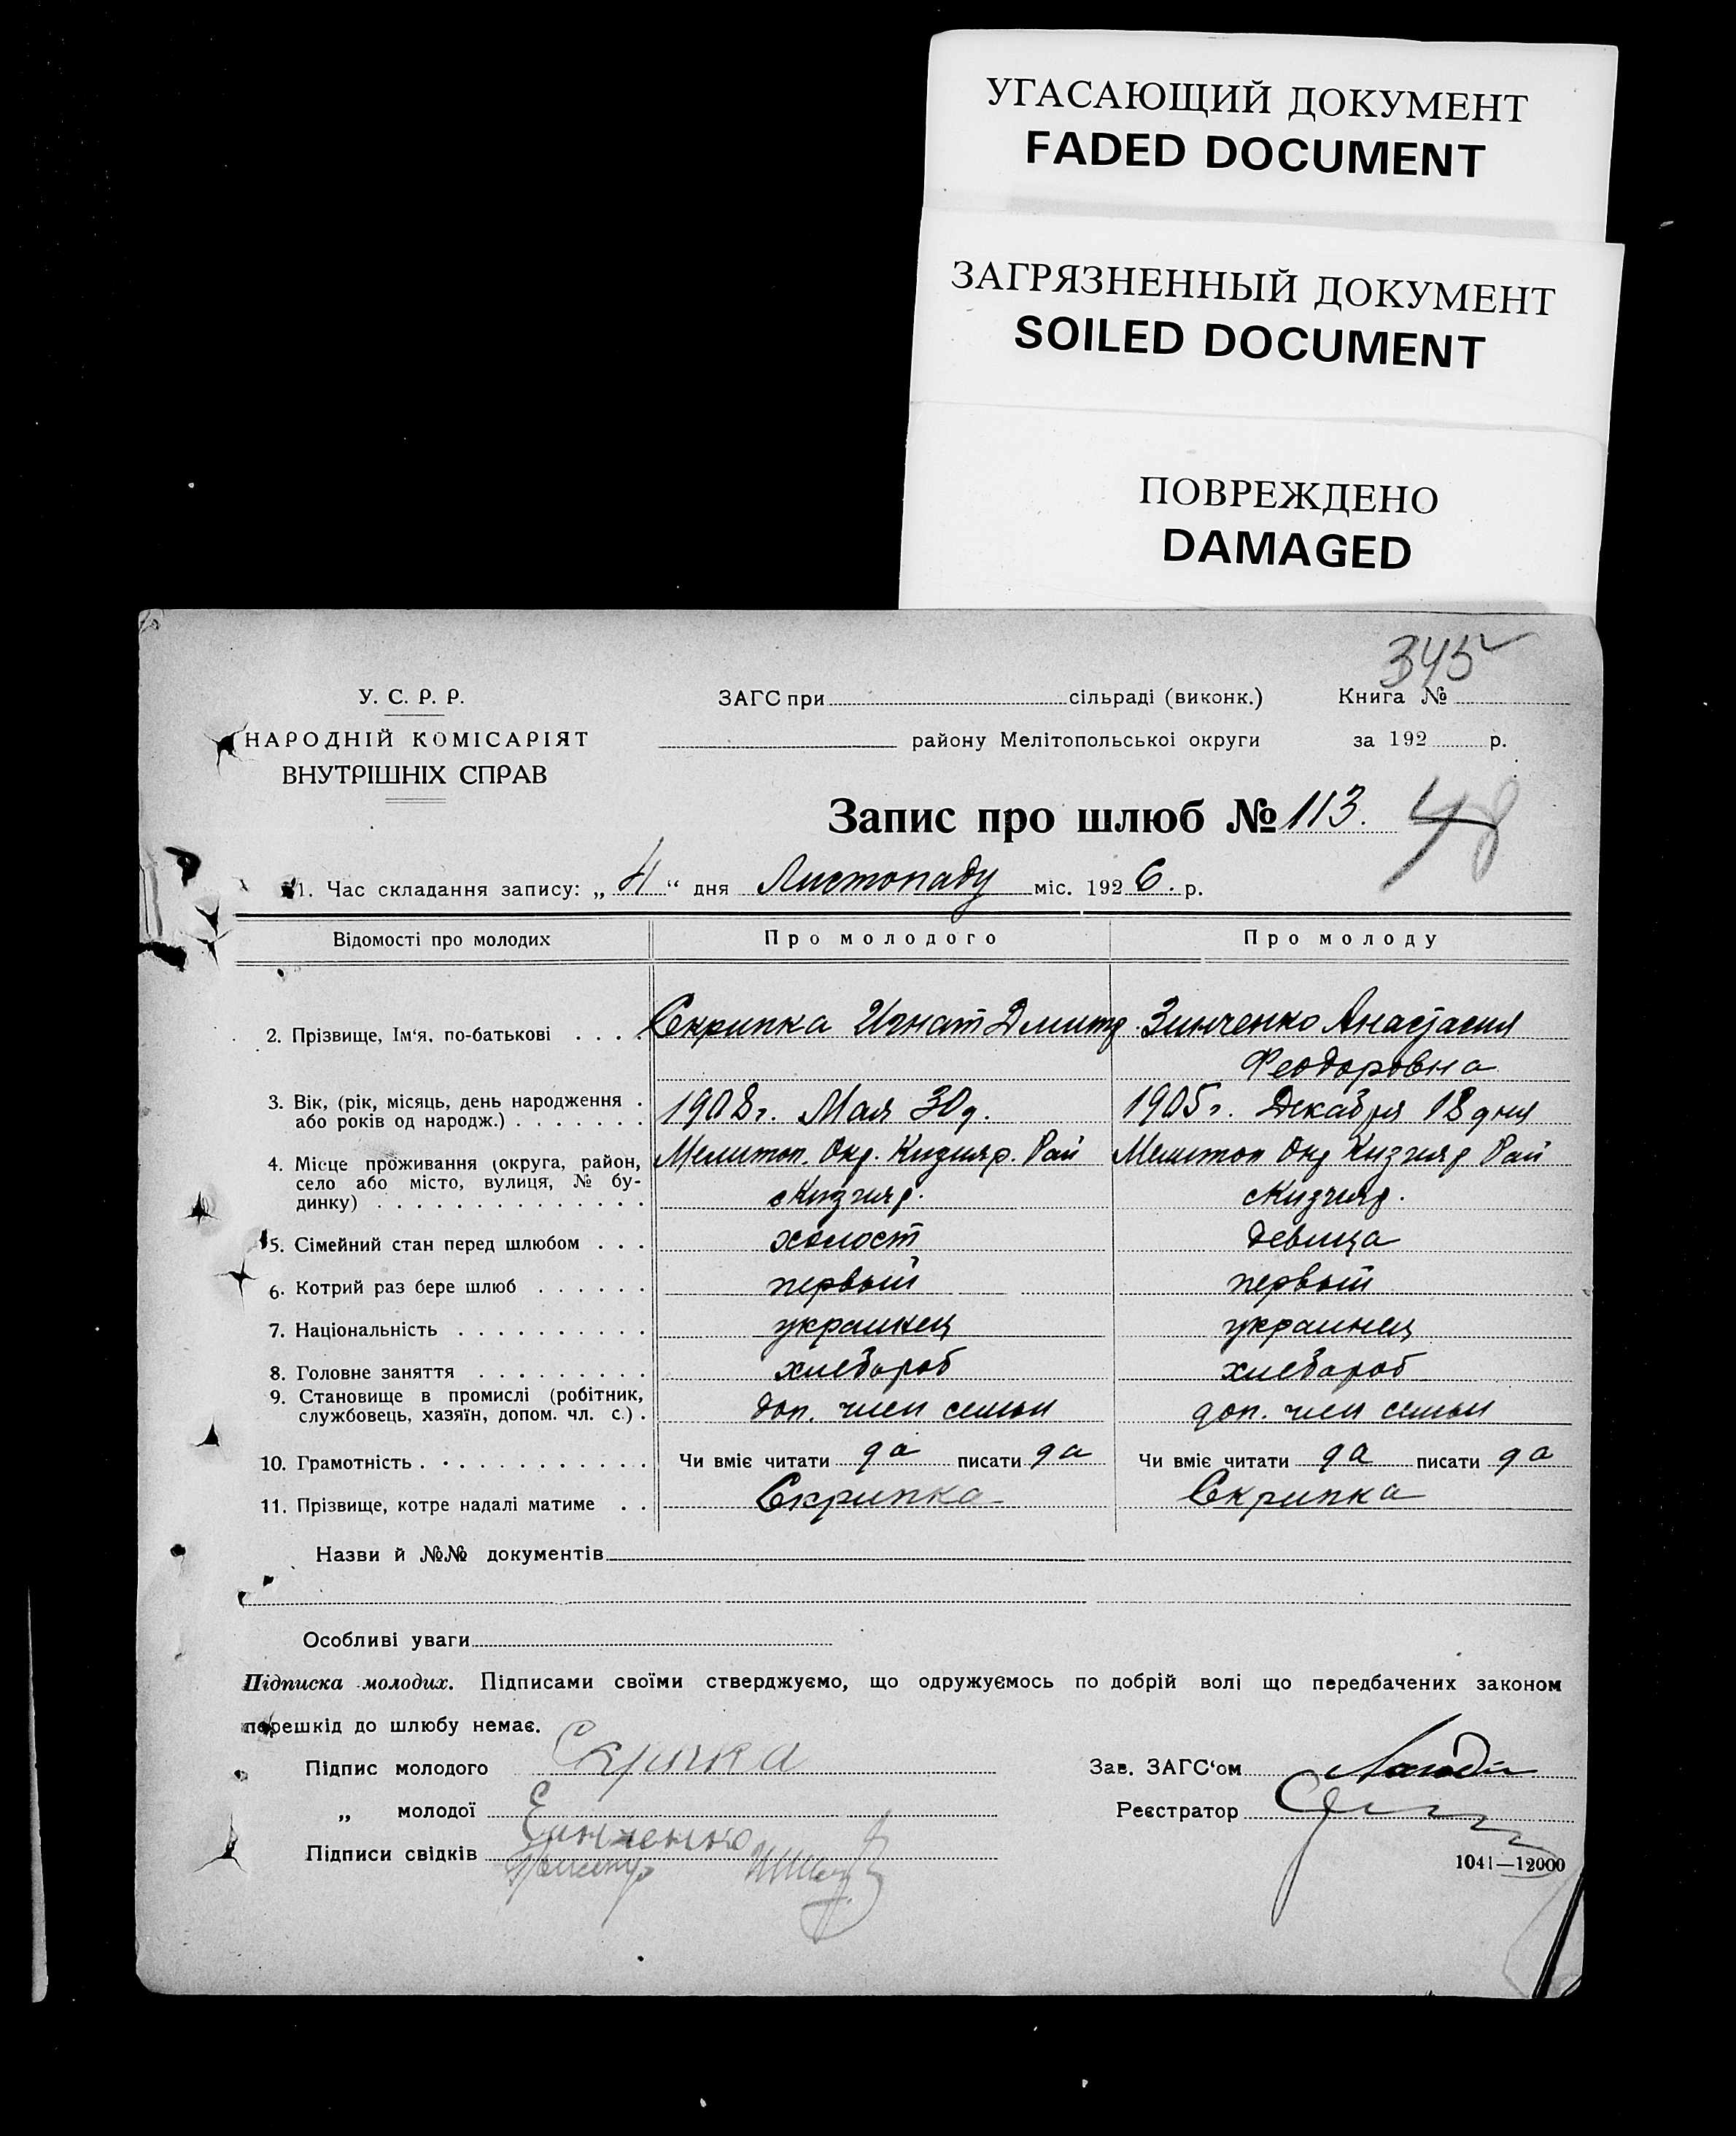 УГАСАЮЩИЙ ДОКУМЕНТ
FADED DOCUMENT
ЗАГРЯЗНЕННЫЙ ДОКУМЕНТ
SOILED DOCUMENT
ПОВРЕЖДЕНО
DAMAGED
345
У. С. Р. Р.
ЗАГС при сільраді (виконк.) Книга №
НАРОДНІЙ КОМІСАРІЯТ
району Мелітопольської округи за 192 р.
ВНУТРІШНІХ СПРАВ
Запис про шлюб № 113. 48
1. Час складання запису: „4“ дня Листопаду міс. 1926. р.
Відомості про молодих Про молодого Про молоду
2. Прізвище, Ім‘я, по-батькові . . . . Скрипка Игнат Дмитр. Зинченко Анастасия
Феодоровна
3. Вік, (рік, місяць, день народження . або років од народж.) . . . . . . . 1908 г. Мая 30 д. 1905 г. Декабря 18 дня
4. Місце проживання (округа, район, Мелитоп. Окр. Кизияр. Рай Мелитоп Окр Кизияр Рай
село або місто, вулиця, № бу- с Кизияр. с Кизияр.
динку) . . . . . . . . . . . . . .
5. Сімейний стан перед шлюбом . . . холост девица
6. Котрий раз бере шлюб . . . . . . первый первый
7. Національність . . . . . . . . . . украинец украинец
8. Головне заняття . . . . . . . . . хлебороб хлебороб
9. Становище в промислі (робітник,
службовець, хазяїн, допом. чл. с.) . доп. член семьи доп. член семьи
10. Грамотність . . . . . . . . . . . . Чи вміє читати да писати да Чи вміє читати да писати да
11. Прізвище, котре надалі матиме . . Скрипка Скрипка
Назви й №№ документів
Особливі уваги
Підписка молодих. Підписами своїми стверджуємо, що одружуємось по добрій волі що передбачених законом
перешкід до шлюбу немає.
Підпис молодого Скрипка Зав. ЗАГС‘ом
„ молодої Зинченко Реєстратор
Підписи свідків
1041—12000